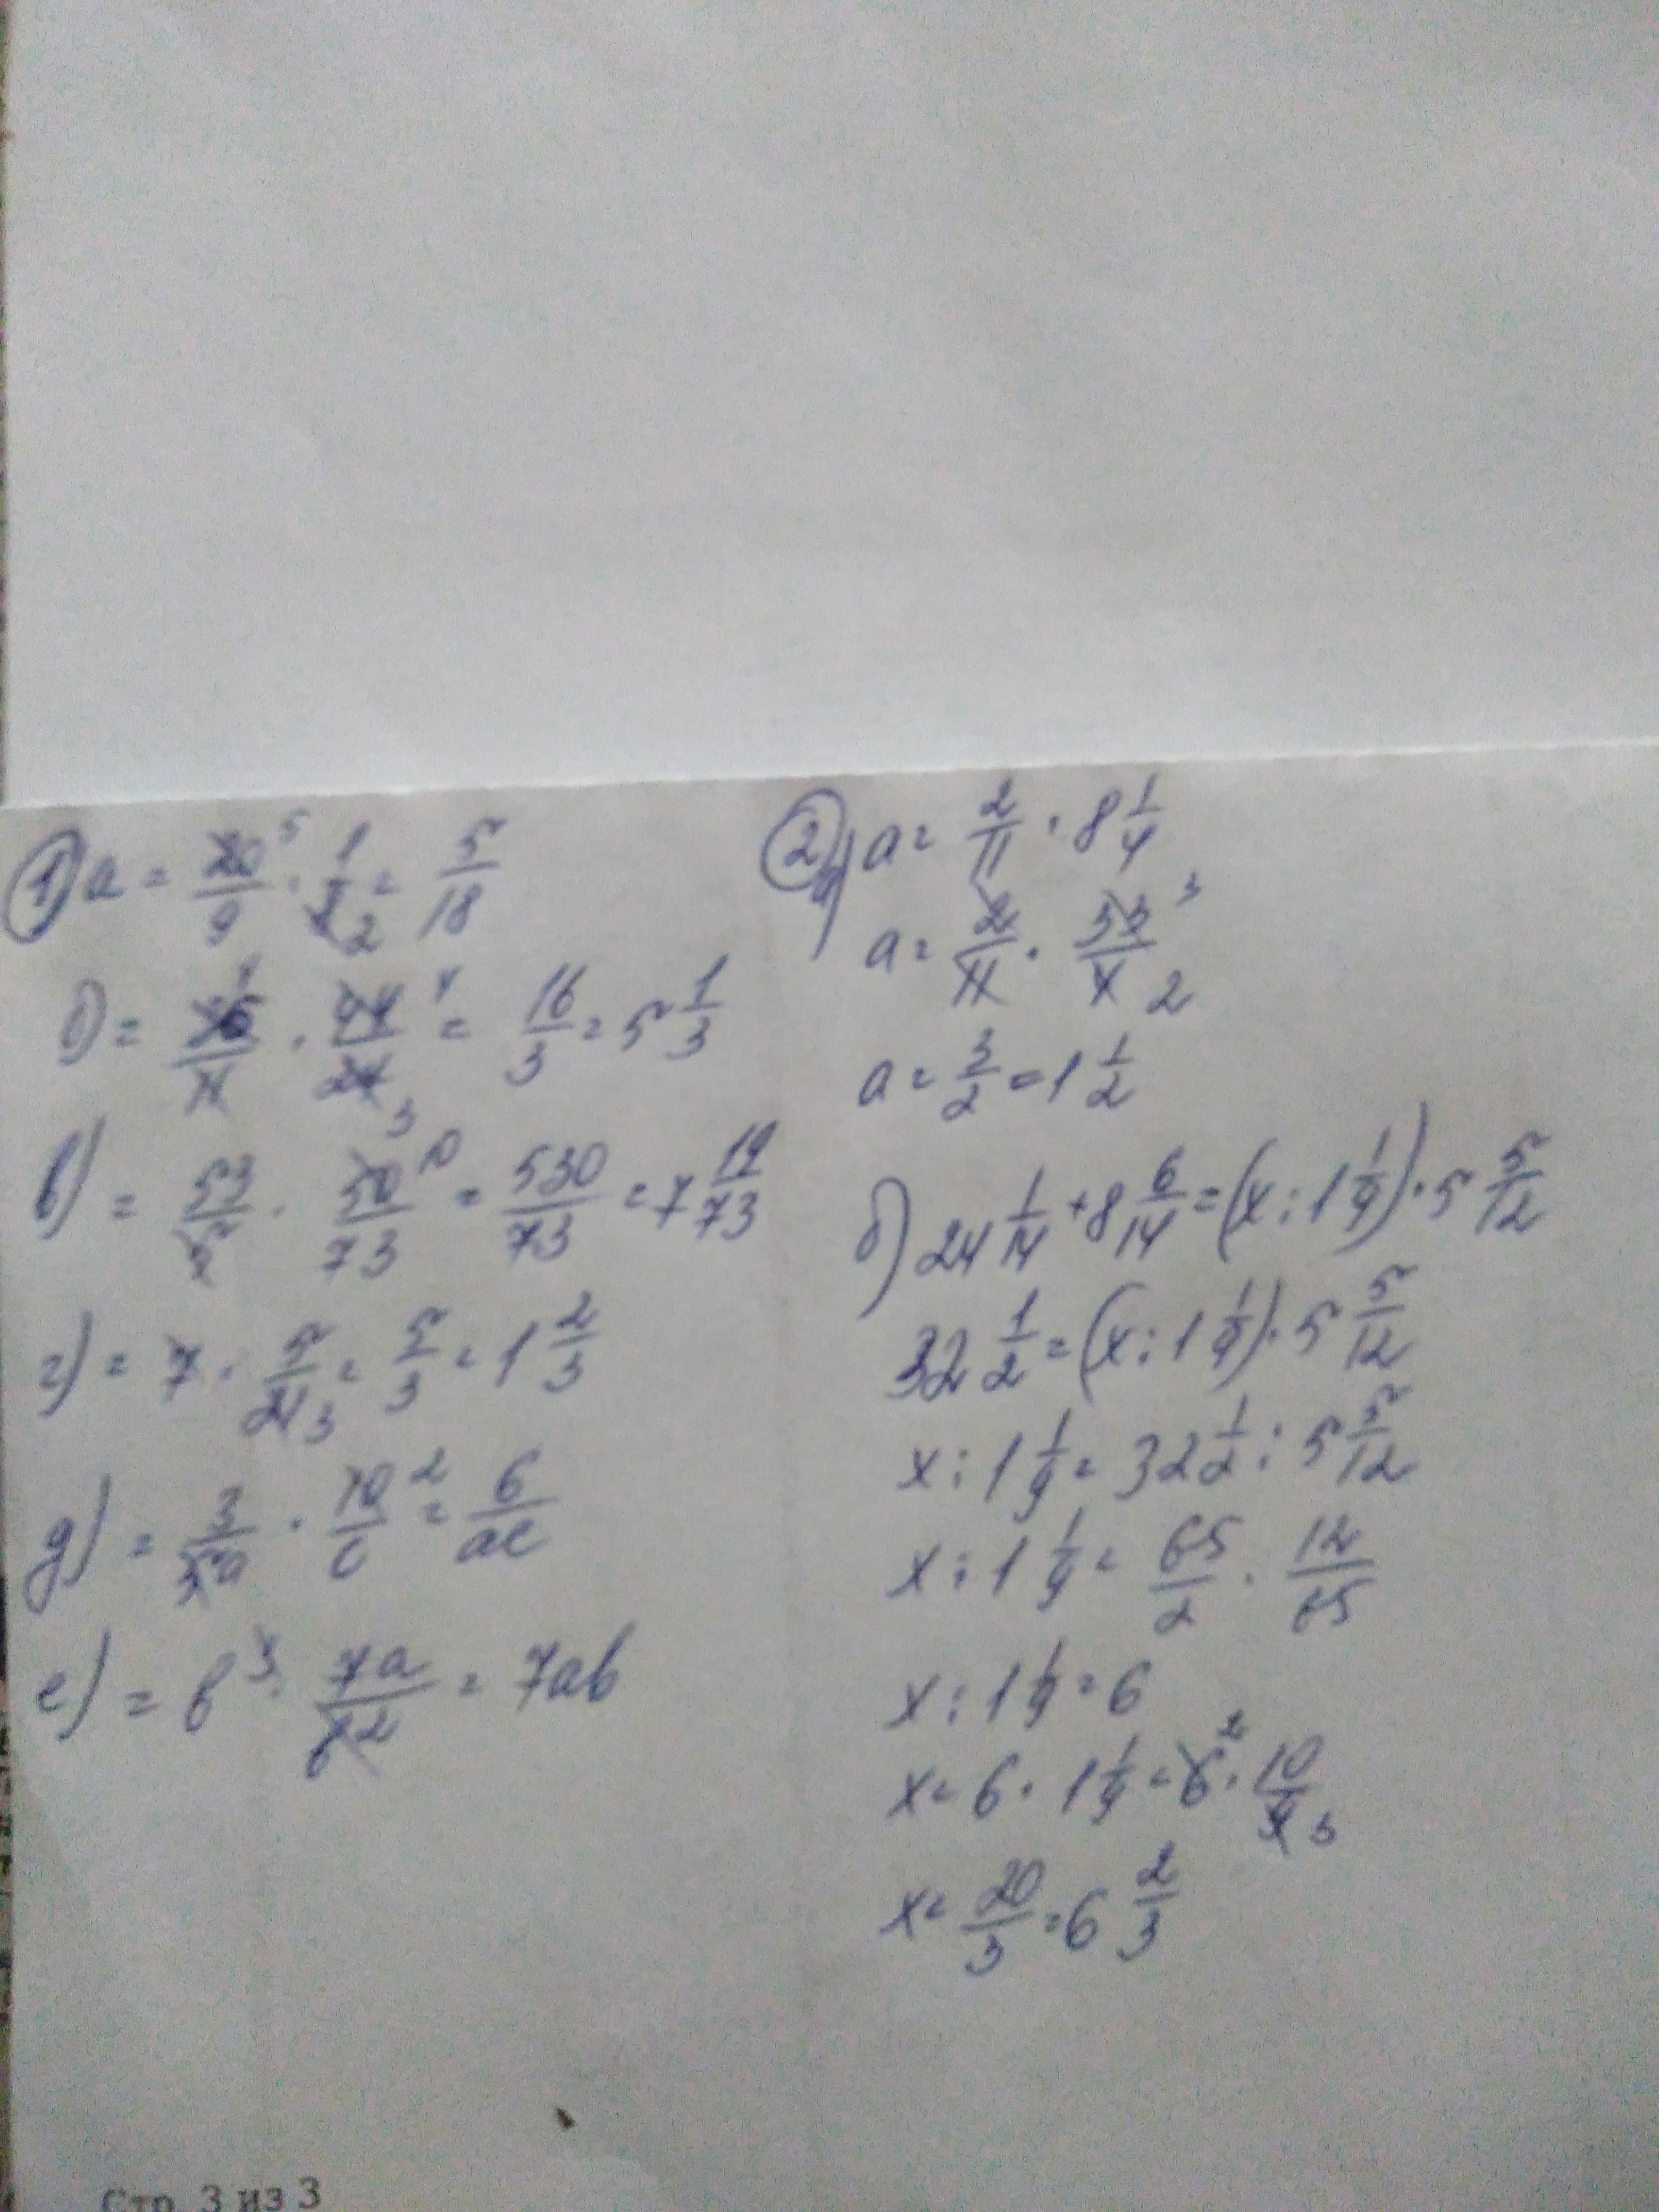 1) а = 20/9 · 1/8 = 5/18
б) = 16/11 · 44/12 = 16/3 = 5 1/3
в) = 53/5 · 50/73 = 530/73 = 7 19/73
г) = 7 · 5/21 = 5/3 = 1 2/3
д) = 3/5a · 10/c = 6/ac
е) = b³ · 7a/b² = 7ab
2) а) a = 2/11 · 8 1/4
a = 2/11 · 33/4
a = 3/2 = 1 1/2
б) 24 1/14 + 8 6/14 = (x : 1 1/9) · 5 5/12
32 1/2 = (x : 1 1/9) · 5 5/12
x : 1 1/9 = 32 1/2 : 5 5/12
x : 1 1/9 = 65/2 · 12/65
x : 1 1/9 = 6
x = 6 · 1 1/9 = 6 · 10/9
x = 20/3 = 6 2/3
Стр. 3 из 3